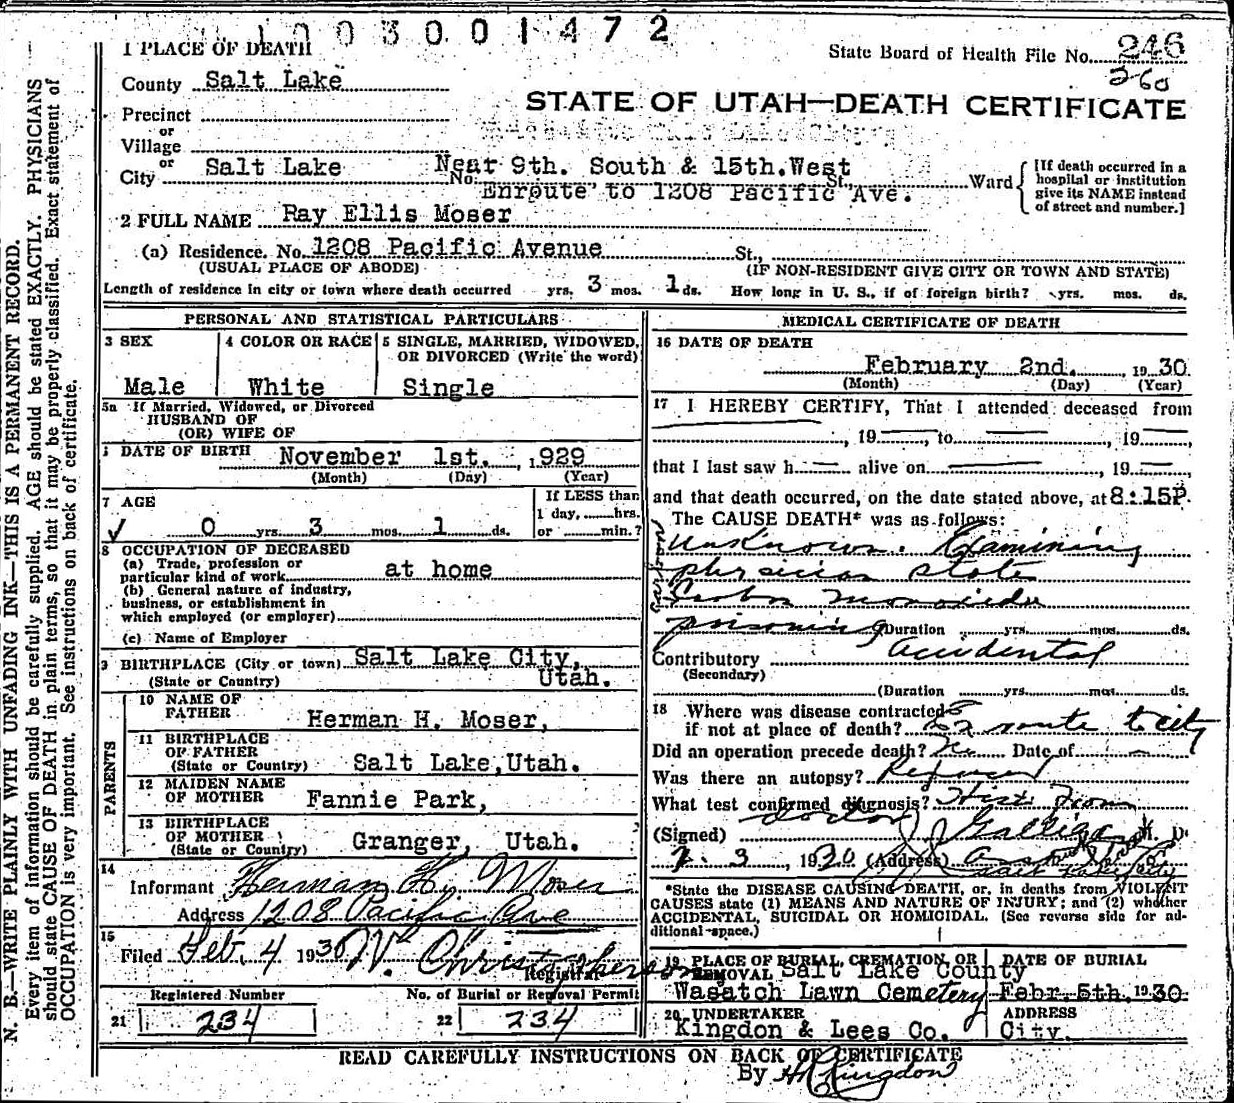 1003001472
1 PLACE OF DEATH
State Board of Health File No. 246
260
County Salt Lake
STATE OF UTAH—DEATH CERTIFICATE
Precinct
or
Village
or
City Salt Lake No. Near 9th. South & 15th. West St., Ward
Enroute to 1208 Pacific Ave.
[If death occurred in a
hospital or institution
give its NAME instead
of street and number.]
2 FULL NAME Ray Ellis Moser
(a) Residence. No. 1208 Pacific Avenue St.,
(USUAL PLACE OF ABODE) (IF NON-RESIDENT GIVE CITY OR TOWN AND STATE)
Length of residence in city or town where death occurred yrs. 3 mos. 1 ds. How long in U. S., if of foreign birth? yrs. mos. ds.
PERSONAL AND STATISTICAL PARTICULARS
3 SEX
Male
4 COLOR OR RACE
White
5 SINGLE, MARRIED, WIDOWED,
OR DIVORCED (Write the word)
Single
5a If Married, Widowed, or Divorced
HUSBAND OF
(OR) WIFE OF
DATE OF BIRTH November 1st. , 1929
(Month) (Day) (Year)
7 AGE
0 yrs. 3 mos. 1 ds.
If LESS than
1 day, hrs.
or min.?
8 OCCUPATION OF DECEASED
(a) Trade, profession or
particular kind of work at home
(b) General nature of industry,
business, or establishment in
which employed (or employer)
(c) Name of Employer
9 BIRTHPLACE (City or town) Salt Lake City,
(State or Country) Utah.
PARENTS
10 NAME OF
FATHER Herman H. Moser,
11 BIRTHPLACE
OF FATHER
(State or Country) Salt Lake, Utah.
12 MAIDEN NAME
OF MOTHER Fannie Park,
13 BIRTHPLACE
OF MOTHER
(State or Country) Granger, Utah.
14
Informant Herman H. Moser
Address 1208 Pacific Ave
15
Filed Feb. 4 1930 W. Christopherson
Registrar
Registered Number
21 234
No. of Burial or Removal Permit
22 234
MEDICAL CERTIFICATE OF DEATH
16 DATE OF DEATH
February 2nd. , 1930
(Month) (Day) (Year)
17 I HEREBY CERTIFY, That I attended deceased from
, 19 to , 19 ,
that I last saw h alive on , 19 ,
and that death occurred, on the date stated above, at 8:15P.
The CAUSE DEATH* was as follows:
Unknown. Examining
physician state
Carbon monoxide
poisoning (Duration yrs. mos. ds.
Contributory Accidental
(Secondary)
(Duration yrs. mos. ds.
18 Where was disease contracted
if not at place of death? En route to city
Did an operation precede death? No Date of
Was there an autopsy? Refused
What test confirmed diagnosis? Hist from
doctor
(Signed) J J Galligan M. D.
2. 3 , 1930 (Address)
Salt Lake City
*State the DISEASE CAUSING DEATH, or, in deaths from VIOLENT
CAUSES state (1) MEANS AND NATURE OF INJURY; and (2) whether
ACCIDENTAL, SUICIDAL OR HOMICIDAL. (See reverse side for ad-
ditional space.)
19 PLACE OF BURIAL, CREMATION, OR
REMOVAL Salt Lake County
Wasatch Lawn Cemetery
DATE OF BURIAL
Febr. 5th, 1930
20 UNDERTAKER
Kingdon & Lees Co.
ADDRESS
City.
READ CAREFULLY INSTRUCTIONS ON BACK OF CERTIFICATE
By H Kingdon
N. B.—WRITE PLAINLY WITH UNFADING INK—THIS IS A PERMANENT RECORD.
Every item of information should be carefully supplied. AGE should be stated EXACTLY. PHYSICIANS
should state CAUSE OF DEATH in plain terms, so that it may be properly classified. Exact statement of
OCCUPATION is very important. See instructions on back of certificate.